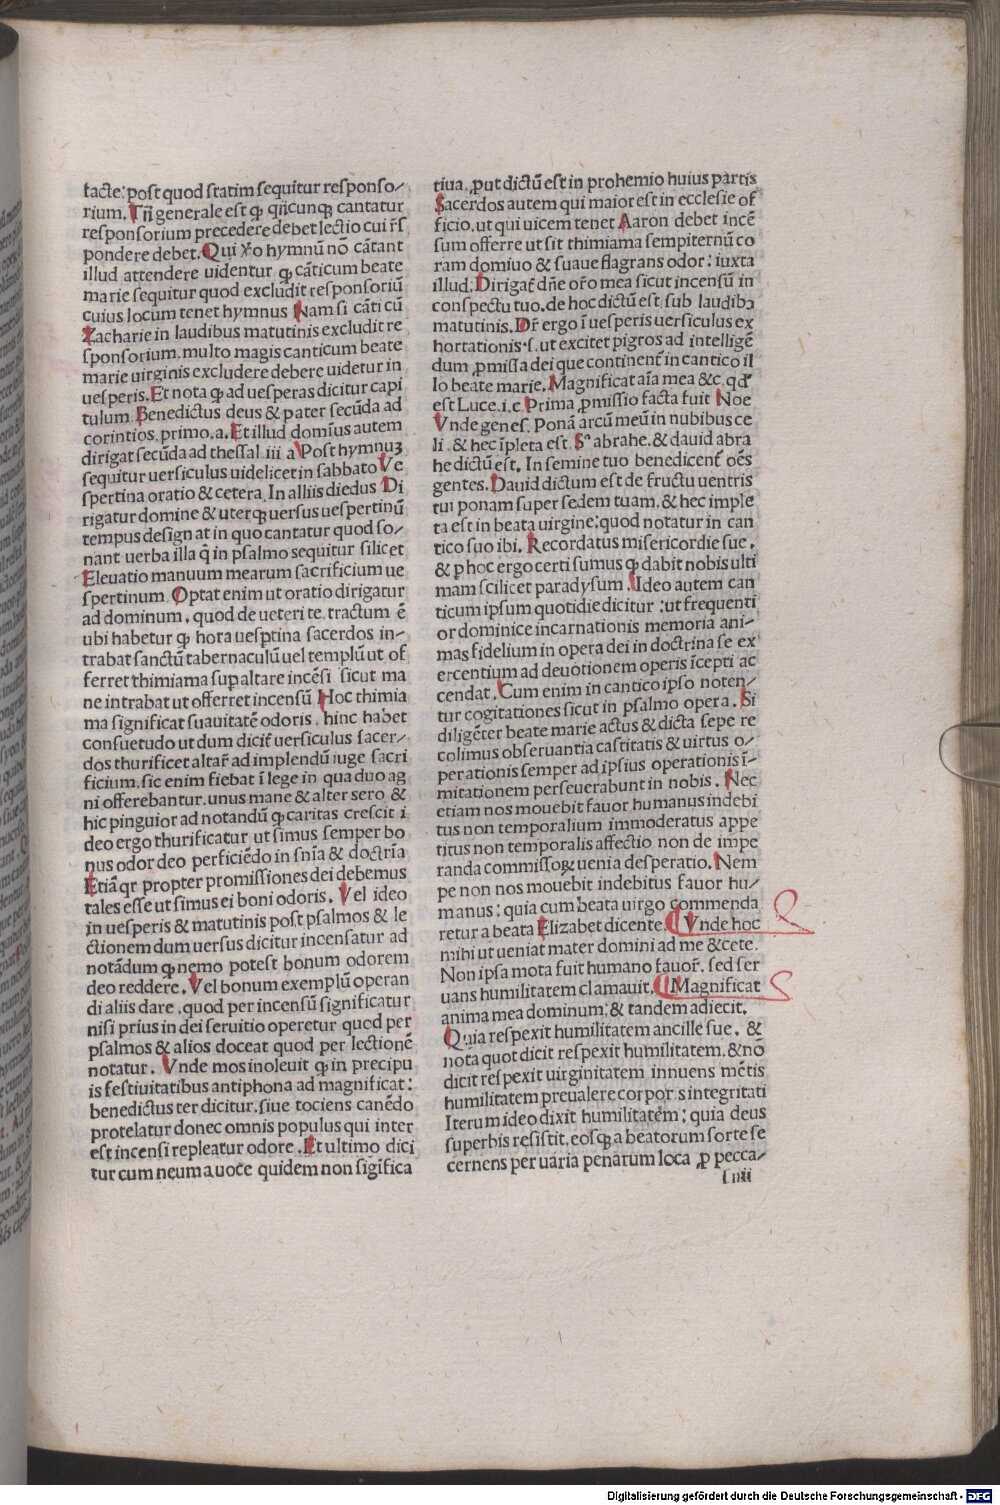 facte: post quod statim sequitur responso⸗
rium. Tn̄ generale est ꝙ qn̄cunqꝫ cantatur
responsorium precedere debet lectio cui r̄s
pondere debet. Qui v̓o hymnū nō cātant
illud attendere uidentur ꝙ cāticum beate
marie sequitur quod excludit responsoriū
cuius locum tenet hymnus Nam si cāti cū
Zacharie in laudibus matutinis excludit re
sponsorium. multo magis canticum beate
marie uirginis excludere debere uidetur in
uesperis. Et nota ꝙ ad uesperas dicitur capi
tulum. Benedictus deus & pater secūda ad
corintios. primo. a. Et illud domīus autem
dirigat secūda ad thessal. iii a Post hymnuꝫ
sequitur uersiculus uidelicet in sabbato Ve
spertina oratio & cetera. In alliis diedus Di
rigatur domine & uterqꝫ uersus uespertinū
tempus designat in quo cantatur quod so⸗
nant uerba illa q̄ in psalmo sequitur silicet
Eleuatio manuum mearum sacrificium ue
spertinum. Optat enim ut oratio dirigatur
ad dominum. quod de ueteri te. tractum ē
ubi habetur ꝙ hora uesp̱tina sacerdos in⸗
trabat sanctū tabernaculū uel templū ut of
ferret thimiama sup̱ altare incēsi sicut ma
ne intrabat ut offerret incensū Hoc thimia
ma significat suauitatē odoris. hinc habet
consuetudo ut dum dicit̄ uersiculus sacer⸗
dos thurificet altar̄ ad implendū iuge sacri
ficium. sic enim fiebat ī lege in qua duo ag
ni offerebantur. unus mane & alter sero &
hic pinguior ad notandū ꝙ caritas crescit ī
deo ergo thurificatur ut simus semper bo
nus odor deo perficiēdo in snīa & doctrīa
Etiā qr propter promissiones dei debemus
tales esse ut simus ei boni odoris. Vel ideo
in uesperis & matutinis post psalmos & le
ctionem dum uersus dicitur incensatur ad
notādum ꝙ nemo potest bonum odorem
deo reddere. Vel bonum exemplū operan
di aliis dare. quod per incensū significatur
nisi prius in dei seruitio operetur quod per
psalmos & alios doceat quod per lectionē
notatur. Vnde mos inoleuit ꝙ in precipu
is festiuitatibus antiphona ad magnificat:
benedictus ter dicitur. siue tociens canēdo
protelatur donec omnis populus qui inter
est incensi repleatur odore. Et ultimo dici
tur cum neuma uoce quidem non sigīfica
tiua. ꝓut dictū est in prohemio huius partis
Sacerdos autem qui maior est in ecclesie of
ficio. ut qui uicem tenet Aaron debet incē
sum offerre ut sit thimiama sempiternū co
ram domiuo & suaue flagrans odor: iuxta
illud. Dirigat̄ dn̄e or̄o mea sicut incensū in
conspectu tuo. de hoc dictū est sub laudibꝫ
matutinis. Dr̄ ergo ī uesperis uersiculus ex
hortationis. s. ut excitet pigros ad intelligē
dum ꝓmissa dei que continent̄ in cantico il
lo beate marie. Magnificat aīa mea &c. qd̓
est Luce. i. e. Prima ꝓmissio facta fuit Noe
Vnde genes. Ponā arcū meū in nubibus ce
li. & hec īpleta est. Sᵃ abrahe. & dauid abra
he dictū est. In semine tuo benedicent̄ oēs
gentes. Dauid dictum est de fructu uentris
tui ponam super sedem tuam. & hec imple
ta est in beata uirgine: quod notatur in can
tico suo ibi. Recordatus misericordie sue.
& ꝑ hoc ergo certi sumus ꝙ dabit nobis ulti
mam scilicet paradysum. Ideo autem can
ticum ipsum quotidie dicitur: ut frequenti
or dominice incarnationis memoria ani⸗
mas fidelium in opera dei in doctrina se ex
ercentium ad deuotionem operis īcepti ac
cendat. Cum enim in cantico ipso noten⸗
tur cogitationes sicut in psalmo opera. Si
diligēter beate marie actus & dicta sepe re
colimus obseruantia castitatis & uirtus o⸗
perationis semper ad ipsius operationis ī⸗
mitationem perseuerabunt in nobis. Nec
etiam nos mouebit fauor humanus indebi
tus non temporalium immoderatus appe
titus non temporalis affectio non de impe
randa commissoꝝ uenia desperatio. Nem
pe non nos mouebit indebitus fauor hu⸗
manus: quia cum beata uirgo commenda
retur a beata Elizabet dicente. Vnde hoc
mihi ut ueniat mater domini ad me &cete.
Non ipsa mota fuit humano fauor̄. sed ser
uans humilitatem clamauit. Magnificat
anima mea dominum: & tandem adiecit.
Quia respexit humilitatem ancille sue. &
nota quot dicit respexit humilitatem. & nō
dicit respexit uirginitatem innuens mētis
humilitatem preualere corporis integritati
Iterum ideo dixit humilitatem: quia deus
superbis resistit. eosqꝫ a beatorum sorte se
cernens per uaria penarum loca ꝓ pecca⸗
[iiii
Digitalisierung gefördert durch die Deutsche Forschungsgemeinschaft - DFG